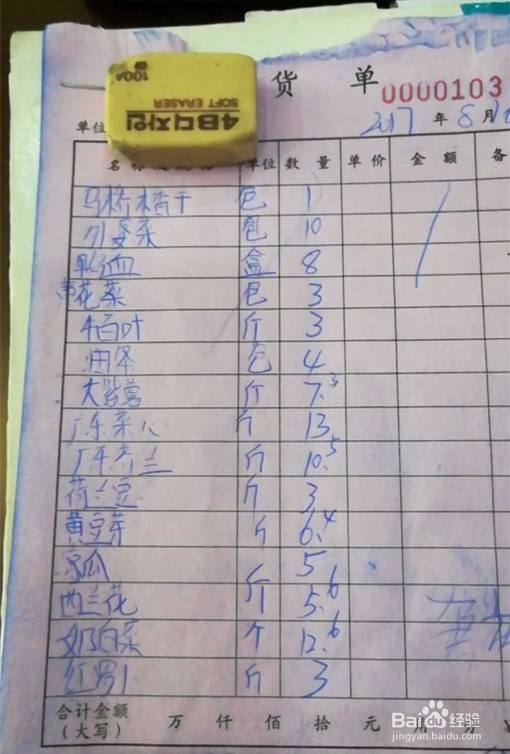 100A
SOFT ERASER
4B 디자인
货 单 0000103
单位
2017 年 8 月
单位 数 量 单价 金 额 备
包 1
包 10
血 盒 8
黄花菜 包 3
百叶 斤 3
油条 包 4
大紫薯 斤 7.5
广东菜心 斤 13
广东芥兰 斤 10.5
荷兰豆 斤 3
黄豆芽 斤 6.4
凉瓜 斤 5
西兰花 斤 5.6
奶白菜 斤 12.6
红 斤 3
合计金额
(大写) 万 仟 佰 拾 元 分
Baidu 经验
jingyan.baidu.com